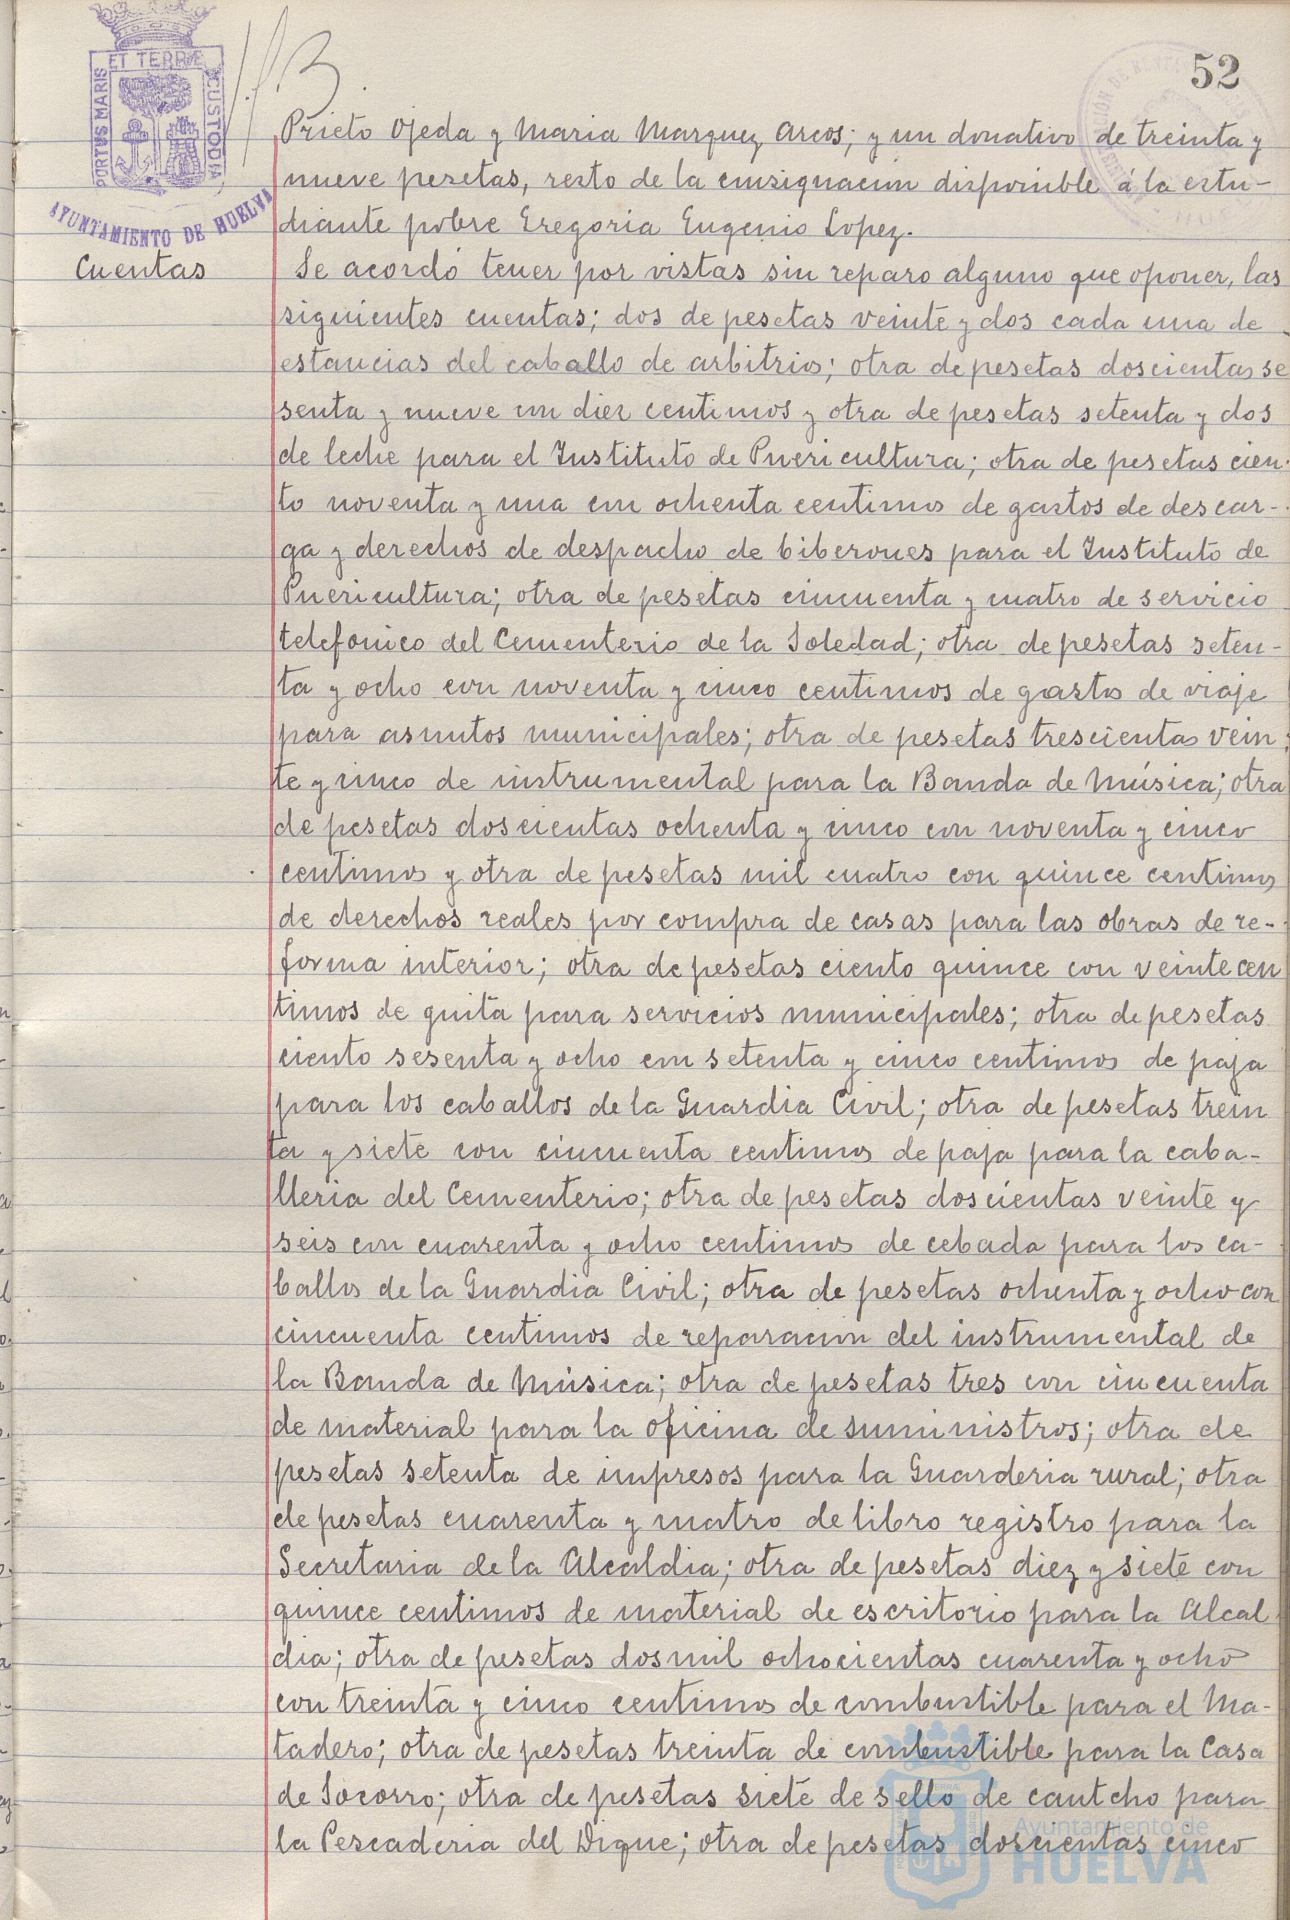 52
PORTUS MARIS ET TERRÆ CUSTODIA
AYUNTAMIENTO DE HUELVA
Prieto Ojeda y Maria Marquez Arcos; y un donativo de treinta y
nueve pesetas, resto de la consignacion disponible á la estu-
diante pobre Gregoria Eugenio Lopez.
Cuentas
Se acordó tener por vistas sin reparo alguno que oponer, las
siguientes cuentas; dos de pesetas veinte y dos cada una de
estancias del caballo de arbitrios; otra de pesetas doscientas se
senta y nueve con diez centimos y otra de pesetas setenta y dos
de leche para el Instituto de Puericultura; otra de pesetas cien-
to noventa y una con ochenta centimos de gastos de descar-
ga y derechos de despacho de biberones para el Instituto de
Puericultura; otra de pesetas cincuenta y cuatro de servicio
telefonico del Cementerio de la Soledad; otra de pesetas seten-
ta y ocho con noventa y cinco centimos de gastos de viaje
para asuntos municipales; otra de pesetas trescientas vein-
te y cinco de instrumental para la Banda de Música; otra
de pesetas doscientas ochenta y cinco con noventa y cinco
centimos y otra de pesetas mil cuatro con quince centimos
de derechos reales por compra de casas para las obras de re-
forma interior; otra de pesetas ciento quince con veinte cen
timos de guita para servicios municipales; otra de pesetas
ciento sesenta y ocho con setenta y cinco centimos de paja
para los caballos de la Guardia Civil; otra de pesetas trein
ta y siete con cincuenta centimos de paja para la caba-
lleria del Cementerio; otra de pesetas doscientas veinte y
seis con cuarenta y ocho centimos de cebada para los ca-
ballos de la Guardia Civil; otra de pesetas ochenta y ocho con
cincuenta centimos de reparacion del instrumental de
la Banda de Música; otra de pesetas tres con cincuenta
de material para la oficina de suministros; otra de
pesetas setenta de impresos para la Guarderia rural; otra
de pesetas cuarenta y cuatro de libro registro para la
Secretaria de la Alcaldia; otra de pesetas diez y siete con
quince centimos de material de escritorio para la Alcal
dia; otra de pesetas dos mil ochocientas cuarenta y ocho
con treinta y cinco centimos de combustible para el Ma-
tadero; otra de pesetas treinta de combustible para la Casa
de Socorro; otra de pesetas siete de sello de cautcho para
la Pescaderia del Dique; otra de pesetas doscientas cinco
Ayuntamiento de
HUELVA